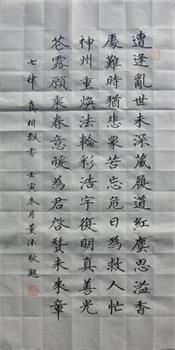 遭逢亂世未深藏履道紅塵思溢香
處難時猶悲眾苦忘危日為救人忙
神州重煥法輪彩浩宇復明真善光
芒露願乘春意暖為君啓贊未來章
七律 真相飄香 壬寅冬月 董沐敬題